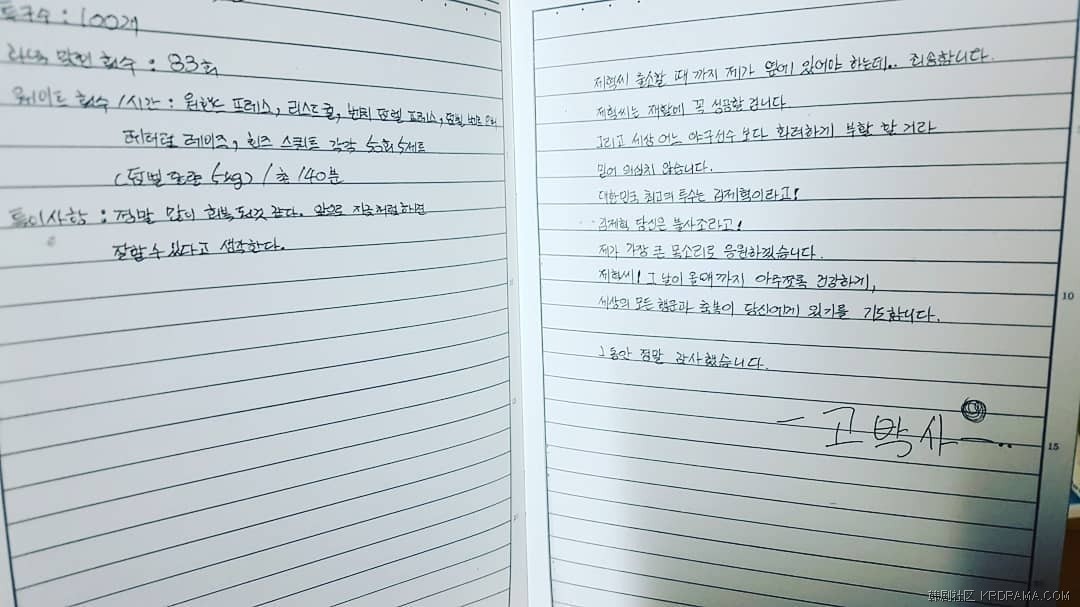 투구수 : 100개
라켓 맞힌 횟수 : 83회
웨이트 횟수 / 시간 : 원핸드 프레스, 리스트 컬, 벤치 덤벨 프레스,
레터럴 레이즈, 힌즈 스쿼트 각각 50회 5세트
(덤벨 5kg) / 총 140분
특이사항 : 정말 많이 회복 된것 같다. 앞으로 지금처럼 하면
잘할 수 있다고 생각한다.
제혁씨 출소할 때 까지 제가 옆에 있어야 하는데.. 죄송합니다.
제혁씨는 재활에 꼭 성공할 겁니다
그리고 세상 어느 야구선수 보다 화려하게 부활 할 거라
믿어 의심치 않습니다.
대한민국 최고의 투수는 김제혁이라고!
김제혁 당신은 불사조라고!
제가 가장 큰 목소리로 응원하겠습니다.
제혁씨! 그 날이 올때 까지 아무쪼록 건강하게,
세상의 모든 행운과 축복이 당신에게 있기를 기도합니다.
그동안 정말 감사했습니다.
- 고박사 -
10
15
韩剧社区 KRDRAMA.COM